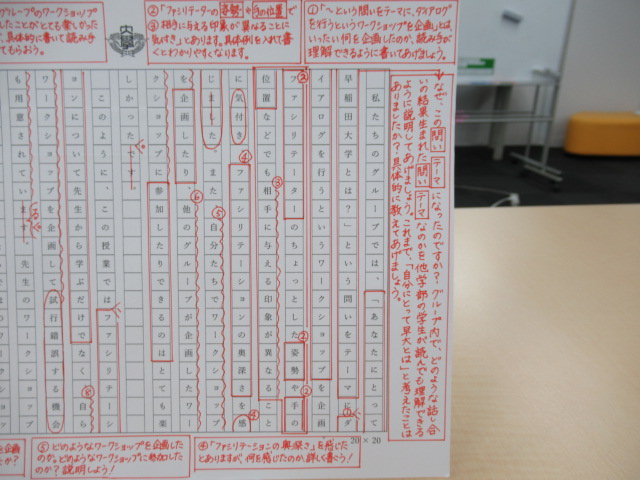 ①「～という問いをテーマに、ダイアログ
を行うというワークショップを企画」とは、
いったい何を企画したのか、読み手が
理解できるように書いてあげましょう。
②「ファシリテーターの姿勢や手の位置」で
③相手に与える印象が異なることに
気付き」とあります。具体例を入れて書
くとわかりやすくなります。
グループのワークショップ
したことがとても楽しかった
、具体的に書いて読み手
てもらおう。
なぜ、この問いテーマになったのですか？グループ内で、どのような話し合
いの結果生まれた問いテーマなのかを他学部の学生が読んでも理解できる
ように説明してあげましょう。これまで、「自分にとって早大とは」と考えたことは
ありましたか？具体的に教えてあげましょう。
私たちのグループでは、「あなたにとって
早稲田大学とは？」という問いをテーマにダ
イアログを行うというワークショップを企画
ファシリテーターのちょっとした姿勢や手の
位置などでも相手に与える印象が異なること
に気付き、ファシリテーションの奥深さを感
じました。また、自分たちでワークショップ
を企画したり、他のグループが企画したワー
クショップに参加したりできるのはとても楽
しかったです。
このように、この授業ではファシリテーシ
ョンについて先生から学ぶだけでなく、自ら
ワークショップを企画して試行錯誤する機会
も用意されています。先生のワークショップ
20×20
④「ファシリテーションの奥深さ」を感じた
とありますが、何を感じたのか、詳しく書こう！
⑤どのようなワークショップを企画した
のか。どのようなワークショップに参加した
のか？説明しよう！